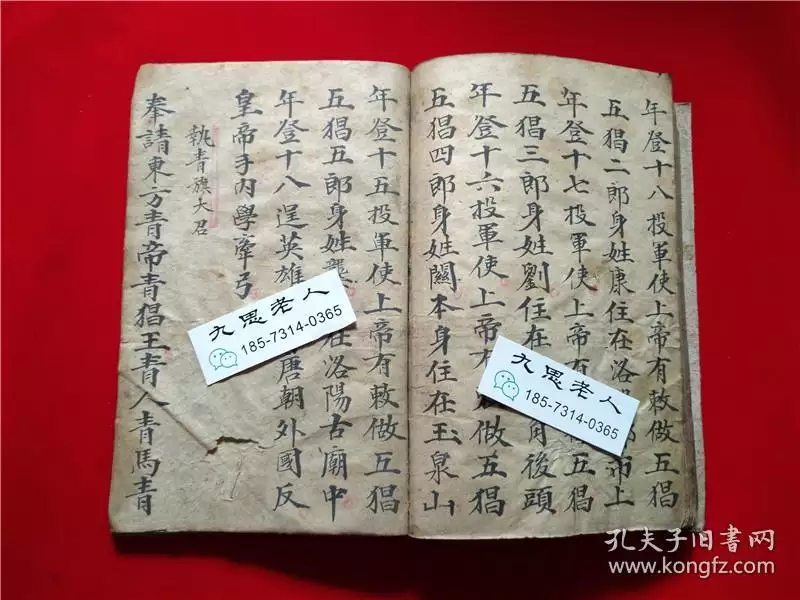 年登十八投軍使上帝有敕做五猖
五猖二郎身姓康住在洛 市上
年登十七投軍使上帝有 五猖
五猖三郎身姓劉住在 角後頭
年登十六投軍使上帝有 做五猖
五猖四郎身姓關本身住在玉泉山
年登十五投軍使上帝有敕做五猖
五猖五郎身姓 在洛陽古廟中
年登十八逞英雄 唐朝外國反
皇帝手內學牽弓
執青旗大召
奉請東方青帝青猖王青人青馬青
九思老人
185-7314-0365
九思老人
185-7314-0365
孔夫子旧书网
www.kongfz.com